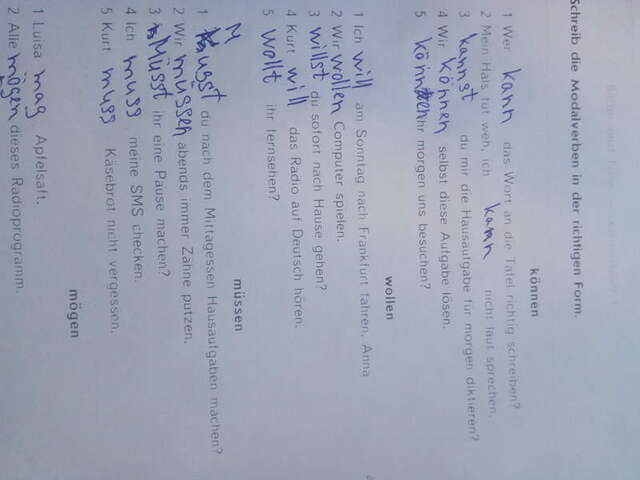 Schreib die Modalverben in der richtigen Form.
können
1 Wer kann das Wort an die Tafel richtig schreiben?
2 Mein Hals tut weh, ich kann nicht laut sprechen.
3 kannst du mir die Hausaufgabe für morgen diktieren?
4 Wir können selbst diese Aufgabe lösen.
5 ihr morgen uns besuchen?
wollen
1 Ich will am Sonntag nach Frankfurt fahren, Anna
2 Wir wollen Computer spielen.
3 willst du sofort nach Hause gehen?
4 Kurt will das Radio auf Deutsch hören.
5 wollt ihr fernsehen?
müssen
1 Musst du nach dem Mittagessen Hausaufgaben machen?
2 Wir müssen abends immer Zähne putzen.
3 Müsst ihr eine Pause machen?
4 Ich muss meine SMS checken.
5 Kurt muss Käsebrot nicht vergessen.
mögen
1 Luisa mag Apfelsaft.
2 Alle mögen dieses Radioprogramm.